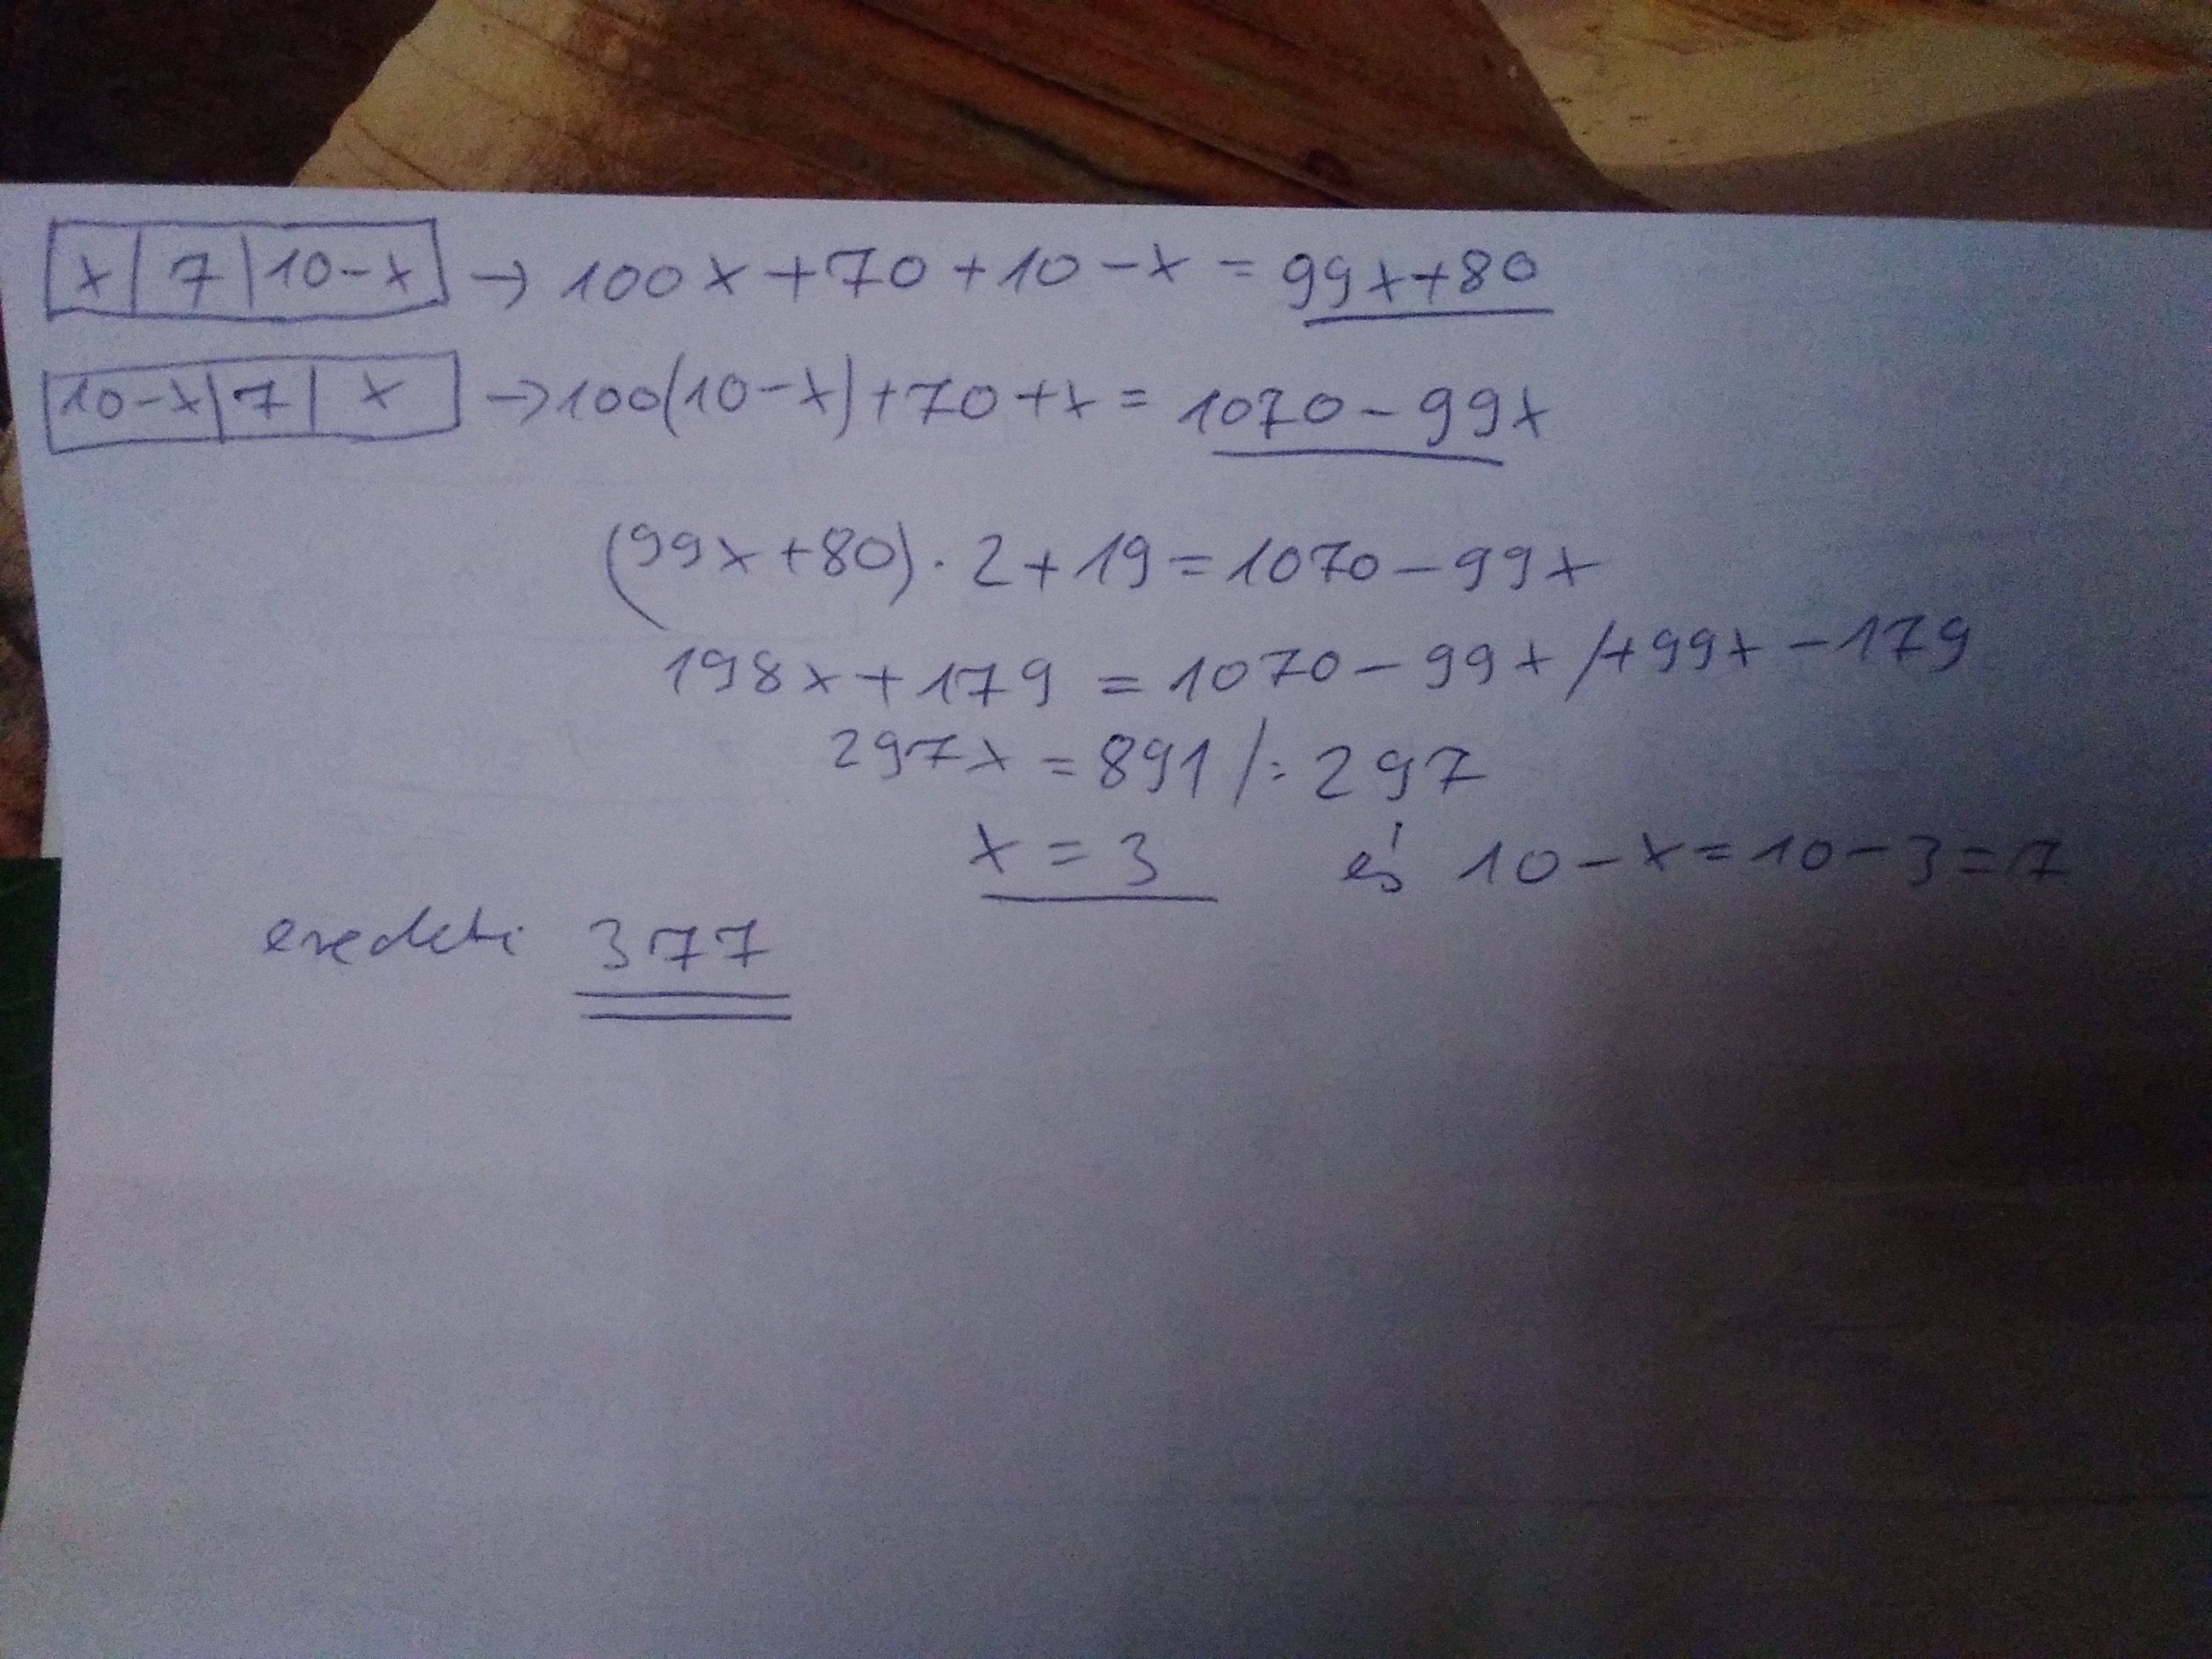 x | 7 | 10-x → 100x+70+10-x = 99x+80
10-x | 7 | x → 100(10-x)+70+x = 1070-99x
(99x+80)·2+19=1070-99x
198x+179 = 1070-99x /+99x-179
297x = 891 /:297
x = 3 és 10-x=10-3=7
eredeti 377